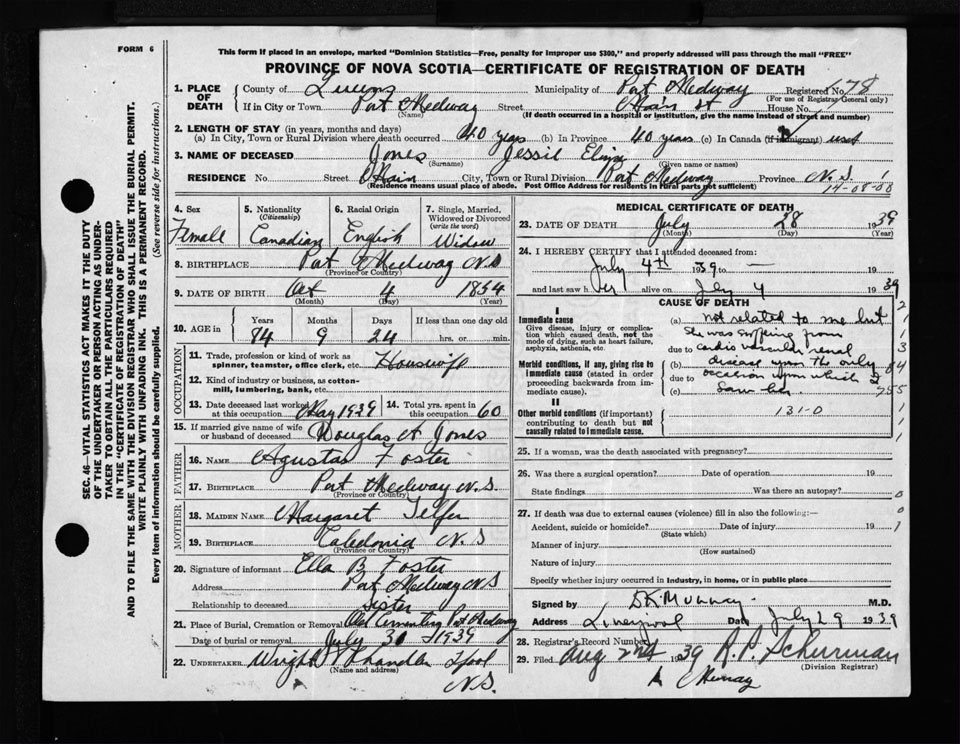 FORM 6
This form if placed in an envelope, marked "Dominion Statistics—Free, penalty for improper use $300," and properly addressed will pass through the mail "FREE"
PROVINCE OF NOVA SCOTIA—CERTIFICATE OF REGISTRATION OF DEATH
SEC. 46—VITAL STATISTICS ACT MAKES IT THE DUTY
OF THE UNDERTAKER OR PERSON ACTING AS UNDER-
TAKER TO OBTAIN ALL THE PARTICULARS REQUIRED
IN THE "CERTIFICATE OF REGISTRATION OF DEATH"
AND TO FILE THE SAME WITH THE DIVISION REGISTRAR WHO SHALL ISSUE THE BURIAL PERMIT.
WRITE PLAINLY WITH UNFADING INK. THIS IS A PERMANENT RECORD.
Every item of information should be carefully supplied. (See reverse side for instructions.)
1. PLACE OF DEATH County of Queens Municipality of Port Medway Registered No. 678
(For use of Registrar General only)
If in City or Town Port Medway Street Main St House No.
(Name) (If death occurred in a hospital or institution, give the name instead of street and number)
2. LENGTH OF STAY (in years, months and days)
(a) In City, Town or Rural Division where death occurred 40 years (b) In Province 40 years (c) In Canada (if immigrant)
3. NAME OF DECEASED Jones Jessie
(Surname) (Given name or names)
RESIDENCE No. Street Main City, Town or Rural Division Port Medway Province N.S.
(Residence means usual place of abode. Post Office Address for residents in rural parts not sufficient) 14-08-00
4. Sex Female
5. Nationality (Citizenship) Canadian
6. Racial Origin English
7. Single, Married, Widowed or Divorced (write the word) Widow
8. BIRTHPLACE Port Medway N.S
(Province or Country)
9. DATE OF BIRTH Oct 4 1854
(Month) (Day) (Year)
10. AGE in Years Months Days If less than one day old
84 9 24 hrs. or min.
OCCUPATION
11. Trade, profession or kind of work as spinner, teamster, office clerk, etc. Housewife
12. Kind of industry or business, as cotton-mill, lumbering, bank, etc.
13. Date deceased last worked at this occupation May 1939
14. Total yrs. spent in this occupation 60
15. If married give name of wife or husband of deceased Douglas A Jones
FATHER
16. Name Agustas Foster
17. Birthplace Port Medway N.S.
(Province or Country)
MOTHER
18. Maiden Name Margaret Telfer
19. Birthplace Caledonia N.S
(Province or Country)
20. Signature of informant Ella B Foster
Address Port Medway N.S
Relationship to deceased Sister
21. Place of Burial, Cremation or Removal Old Cementery Port Medway
Date of burial or removal July 30 1939
22. UNDERTAKER Wright Chandler Lpool
(Name and address) N.S.
MEDICAL CERTIFICATE OF DEATH
23. DATE OF DEATH July 28 1939
(Month) (Day) (Year)
24. I HEREBY CERTIFY that I attended deceased from:
July 4th 1939 to — 19
and last saw her alive on July 4 1939
CAUSE OF DEATH
I
Immediate cause
Give disease, injury or complication which caused death, not the mode of dying, such as heart failure, asphyxia, asthenia, etc.
Morbid conditions, if any, giving rise to immediate cause (stated in order proceeding backwards from immediate cause).
II
Other morbid conditions (if important) contributing to death but not causally related to immediate cause.
(a) not related to me but
she was suffering from
due to cardio vascular renal
(b) disease upon the only
due to occasion upon which I
(c) saw her
131-0
25. If a woman, was the death associated with pregnancy?
26. Was there a surgical operation? Date of operation 19
State findings Was there an autopsy?
27. If death was due to external causes (violence) fill in also the following:—
Accident, suicide or homicide? Date of injury 19
(State which)
Manner of injury
(How sustained)
Nature of injury
Specify whether injury occurred in industry, in home, or in public place
Signed by D.K. Murray M.D.
Address Liverpool Date July 29 1939
28. Registrar's Record Number
29. Filed Aug 2nd 1939 R.P. Schurman
(Division Registrar)
Murray